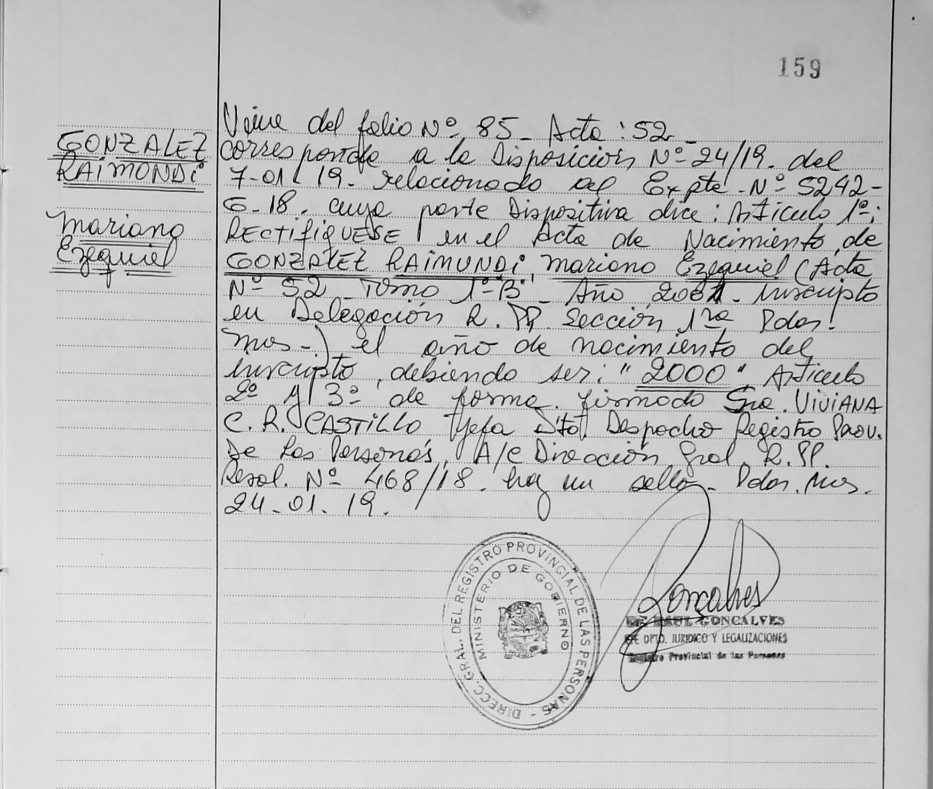 159
GONZALEZ
RAIMONDI
Mariano
Ezequiel
Viene del folio Nº 85_ Acta : 52_
corresponde a la Disposición Nº 24/19. del
7-01-19. relacionado al Expte. Nº 5242-
G-18. cuya parte Dispositiva dice: Artículo 1º:
RECTIFIQUESE en el Acta de Nacimiento de
GONZALEZ RAIMUNDI, Mariano Ezequiel (Acta
Nº 52_ Tomo 1º B_ Año 2001_ inscripto
en Delegación R. PP. Sección 1ra Pdas.
Mnes_) el año de nacimiento del
inscripto, debiendo ser: "2000" Artículo
2º y 3º de forma. Firmado Sra. VIVIANA
C. R. CASTILLO Jefa Dto Despacho Registro Prov.
De las Personas, A/C Dirección Gral R. PP.
Resol. Nº 468/18. hay un sello_ Pdas. Mnes.
24-01-19.
DIRECC. GRAL. DEL REGISTRO PROVINCIAL DE LAS PERSONAS -
MINISTERIO DE GOBIERNO
Gonçalves
RAUL GONCALVES
DPTO. JURIDICO Y LEGALIZACIONES
Registro Provincial de las Personas